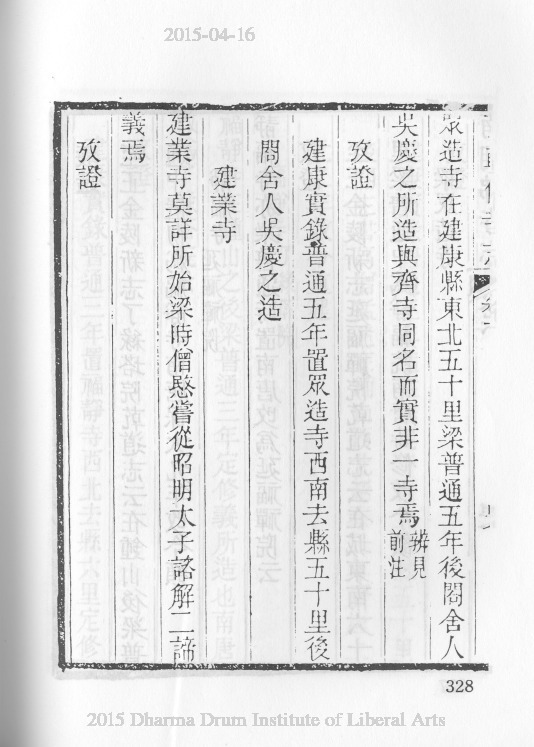 2015-04-16
眾造寺在建康縣東北五十里梁普通五年後閣舍人
吳慶之所造與齊寺同名而實非一寺焉辨見
前注
攷證
建康實錄普通五年置眾造寺西南去縣五十里後
閣舍人吳慶之造
建業寺
建業寺莫詳所始梁時僧愍嘗從昭明太子諮解二諦
義焉
攷證
328
2015 Dharma Drum Institute of Liberal Arts